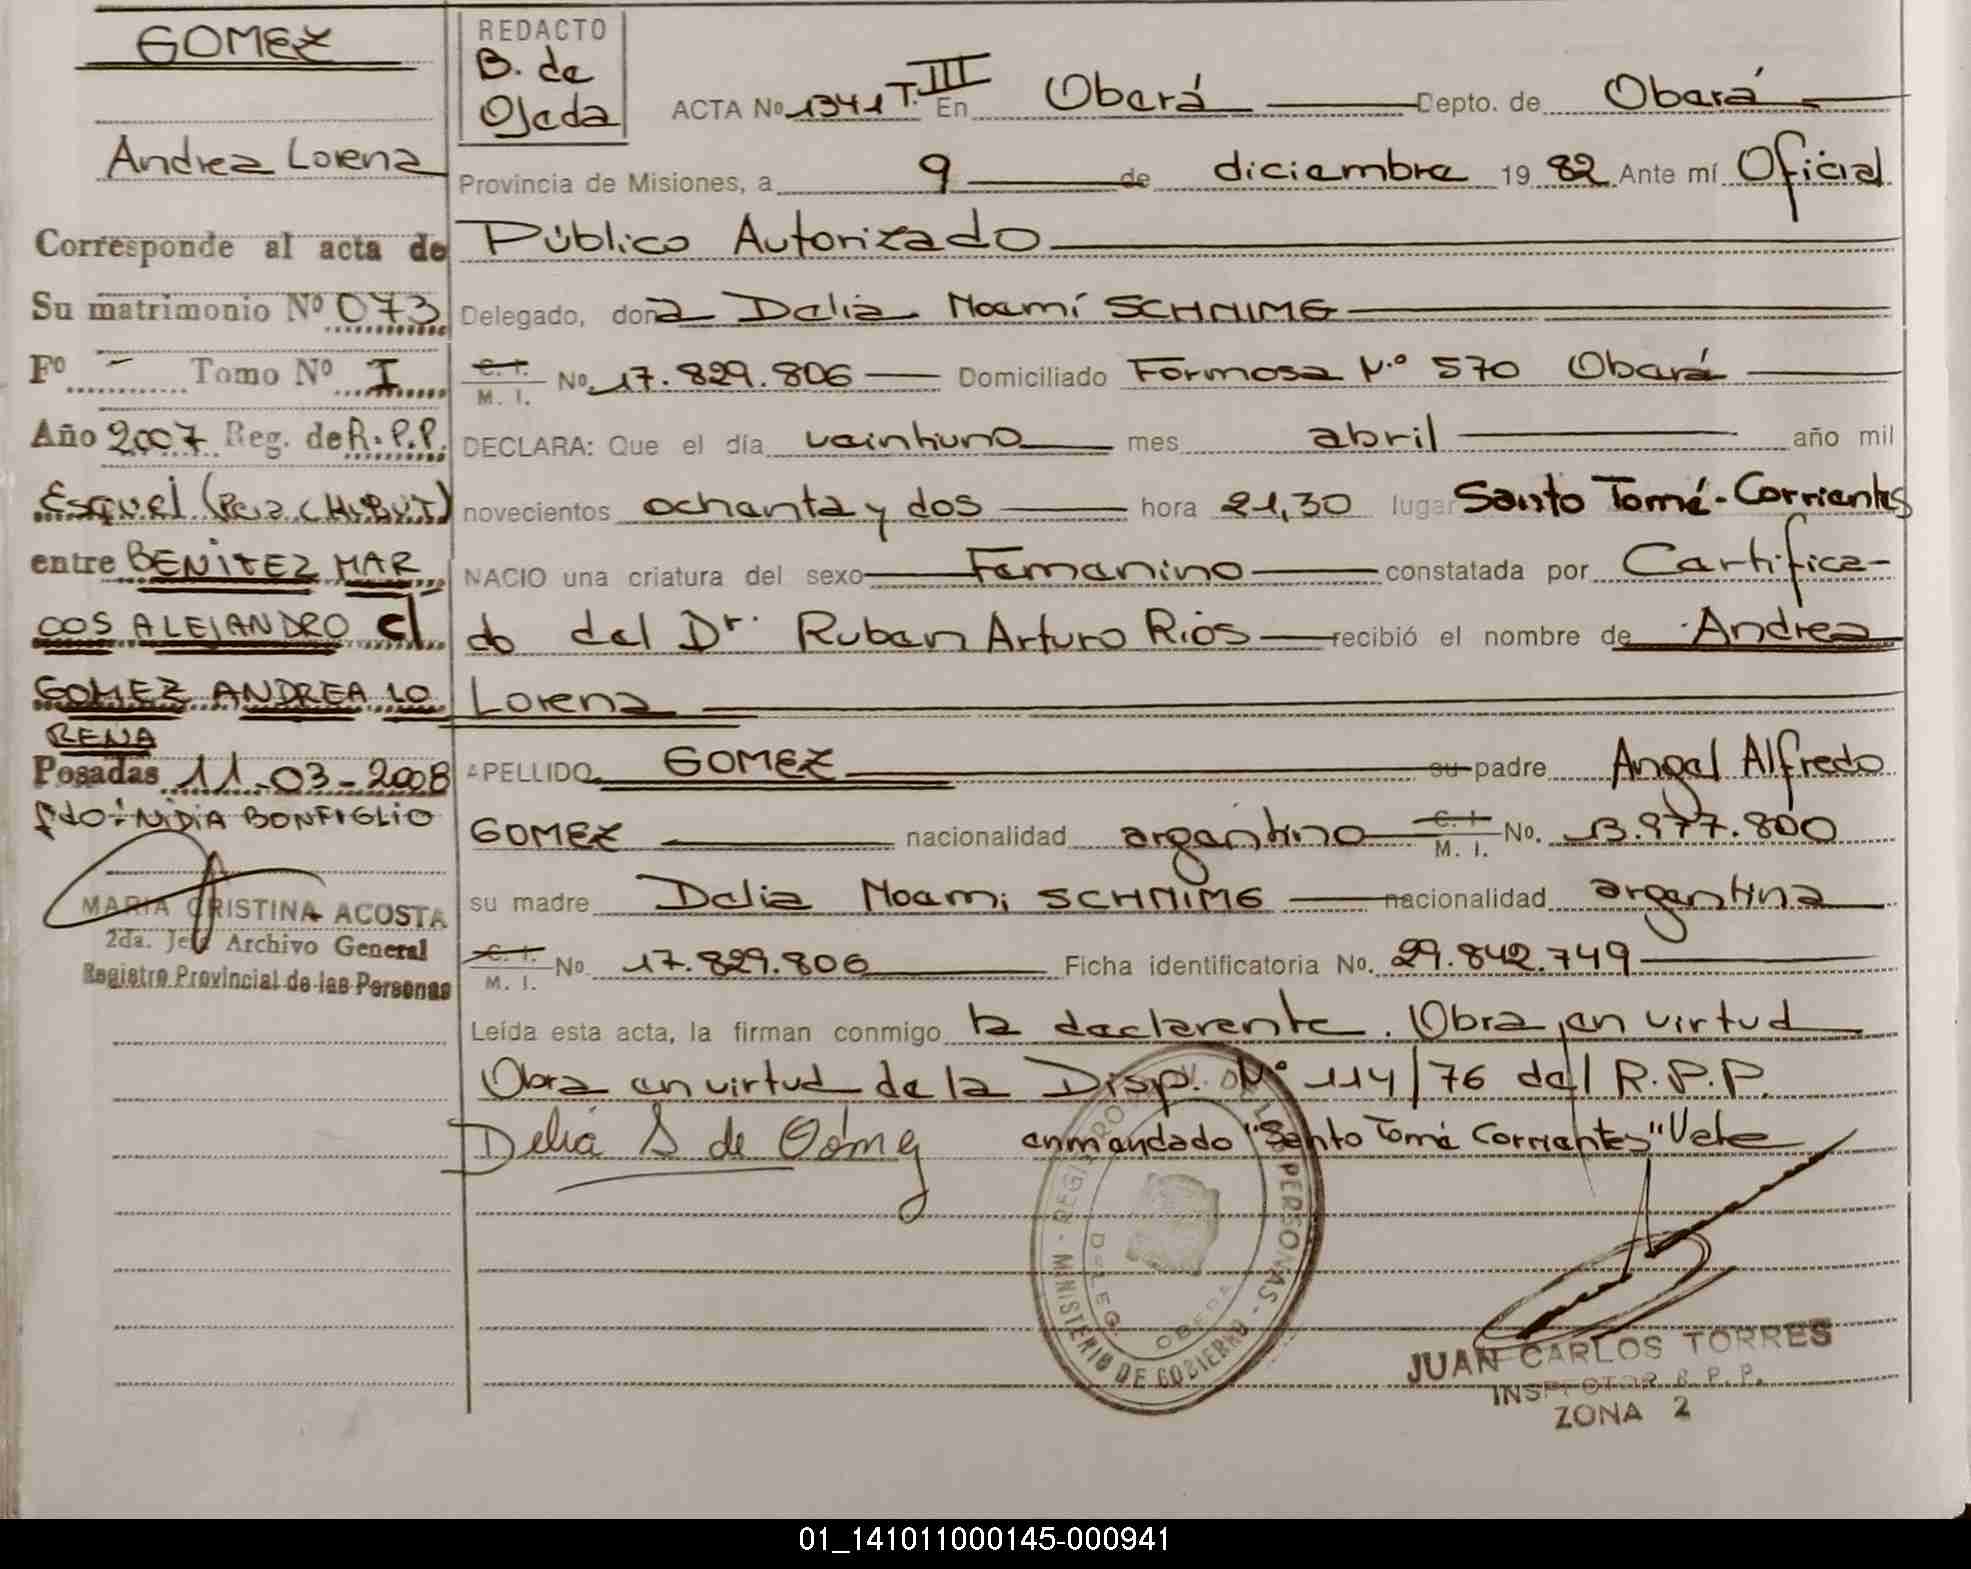 GOMEZ
Andrea Lorena
Corresponde al acta de
Su matrimonio Nº 073
Fº - Tomo Nº I
Año 2007 Reg. de R.P.P.
Esquel (Pcia CHUBUT)
entre BENITEZ MAR
COS ALEJANDRO c/
GOMEZ ANDREA LO
RENA
Posadas 11-03-2008
fdo: NIDIA BONFIGLIO
MARIA CRISTINA ACOSTA
2da. Jefa Archivo General
Registro Provincial de las Personas
REDACTO
B. de
Ojeda
ACTA No 1341 T. III En Oberá Depto. de Oberá
Provincia de Misiones, a 9 de diciembre 19 82 Ante mí Oficial
Público Autorizado
Delegado, don a Delia Noemí SCHNIMG
C. I. M. I. No. 17.829.806 Domiciliado Formosa N.º 570 Oberá
DECLARA: Que el día veintiuno mes abril año mil
novecientos ochenta y dos hora 21,30 lugar Santo Tomé - Corrientes
NACIO una criatura del sexo Femenino constatada por Certifica-
do del Dr. Ruben Arturo Rios recibió el nombre de Andrea
Lorena
APELLIDO GOMEZ su padre Angel Alfredo
GOMEZ nacionalidad argentino C. I. M. I. No. 13.977.800
su madre Delia Noemi SCHNIMG nacionalidad argentina
C. I. M. I. No 17.829.806 Ficha identificatoria No. 29.842.749
Leída esta acta, la firman conmigo la declarente. Obra en virtud
Obra en virtud de la Disp. Nº 114/76 del R.P.P.
Delia S de Gómez enmendado "Santo Tomé Corrientes" Vale
MINISTERIO DE GOBIERNO - REGISTRO PROV. DE LAS PERSONAS -
DELEG. OBERA
JUAN CARLOS TORRES
INSPECTOR R. P. P.
ZONA 2
01_141011000145-000941